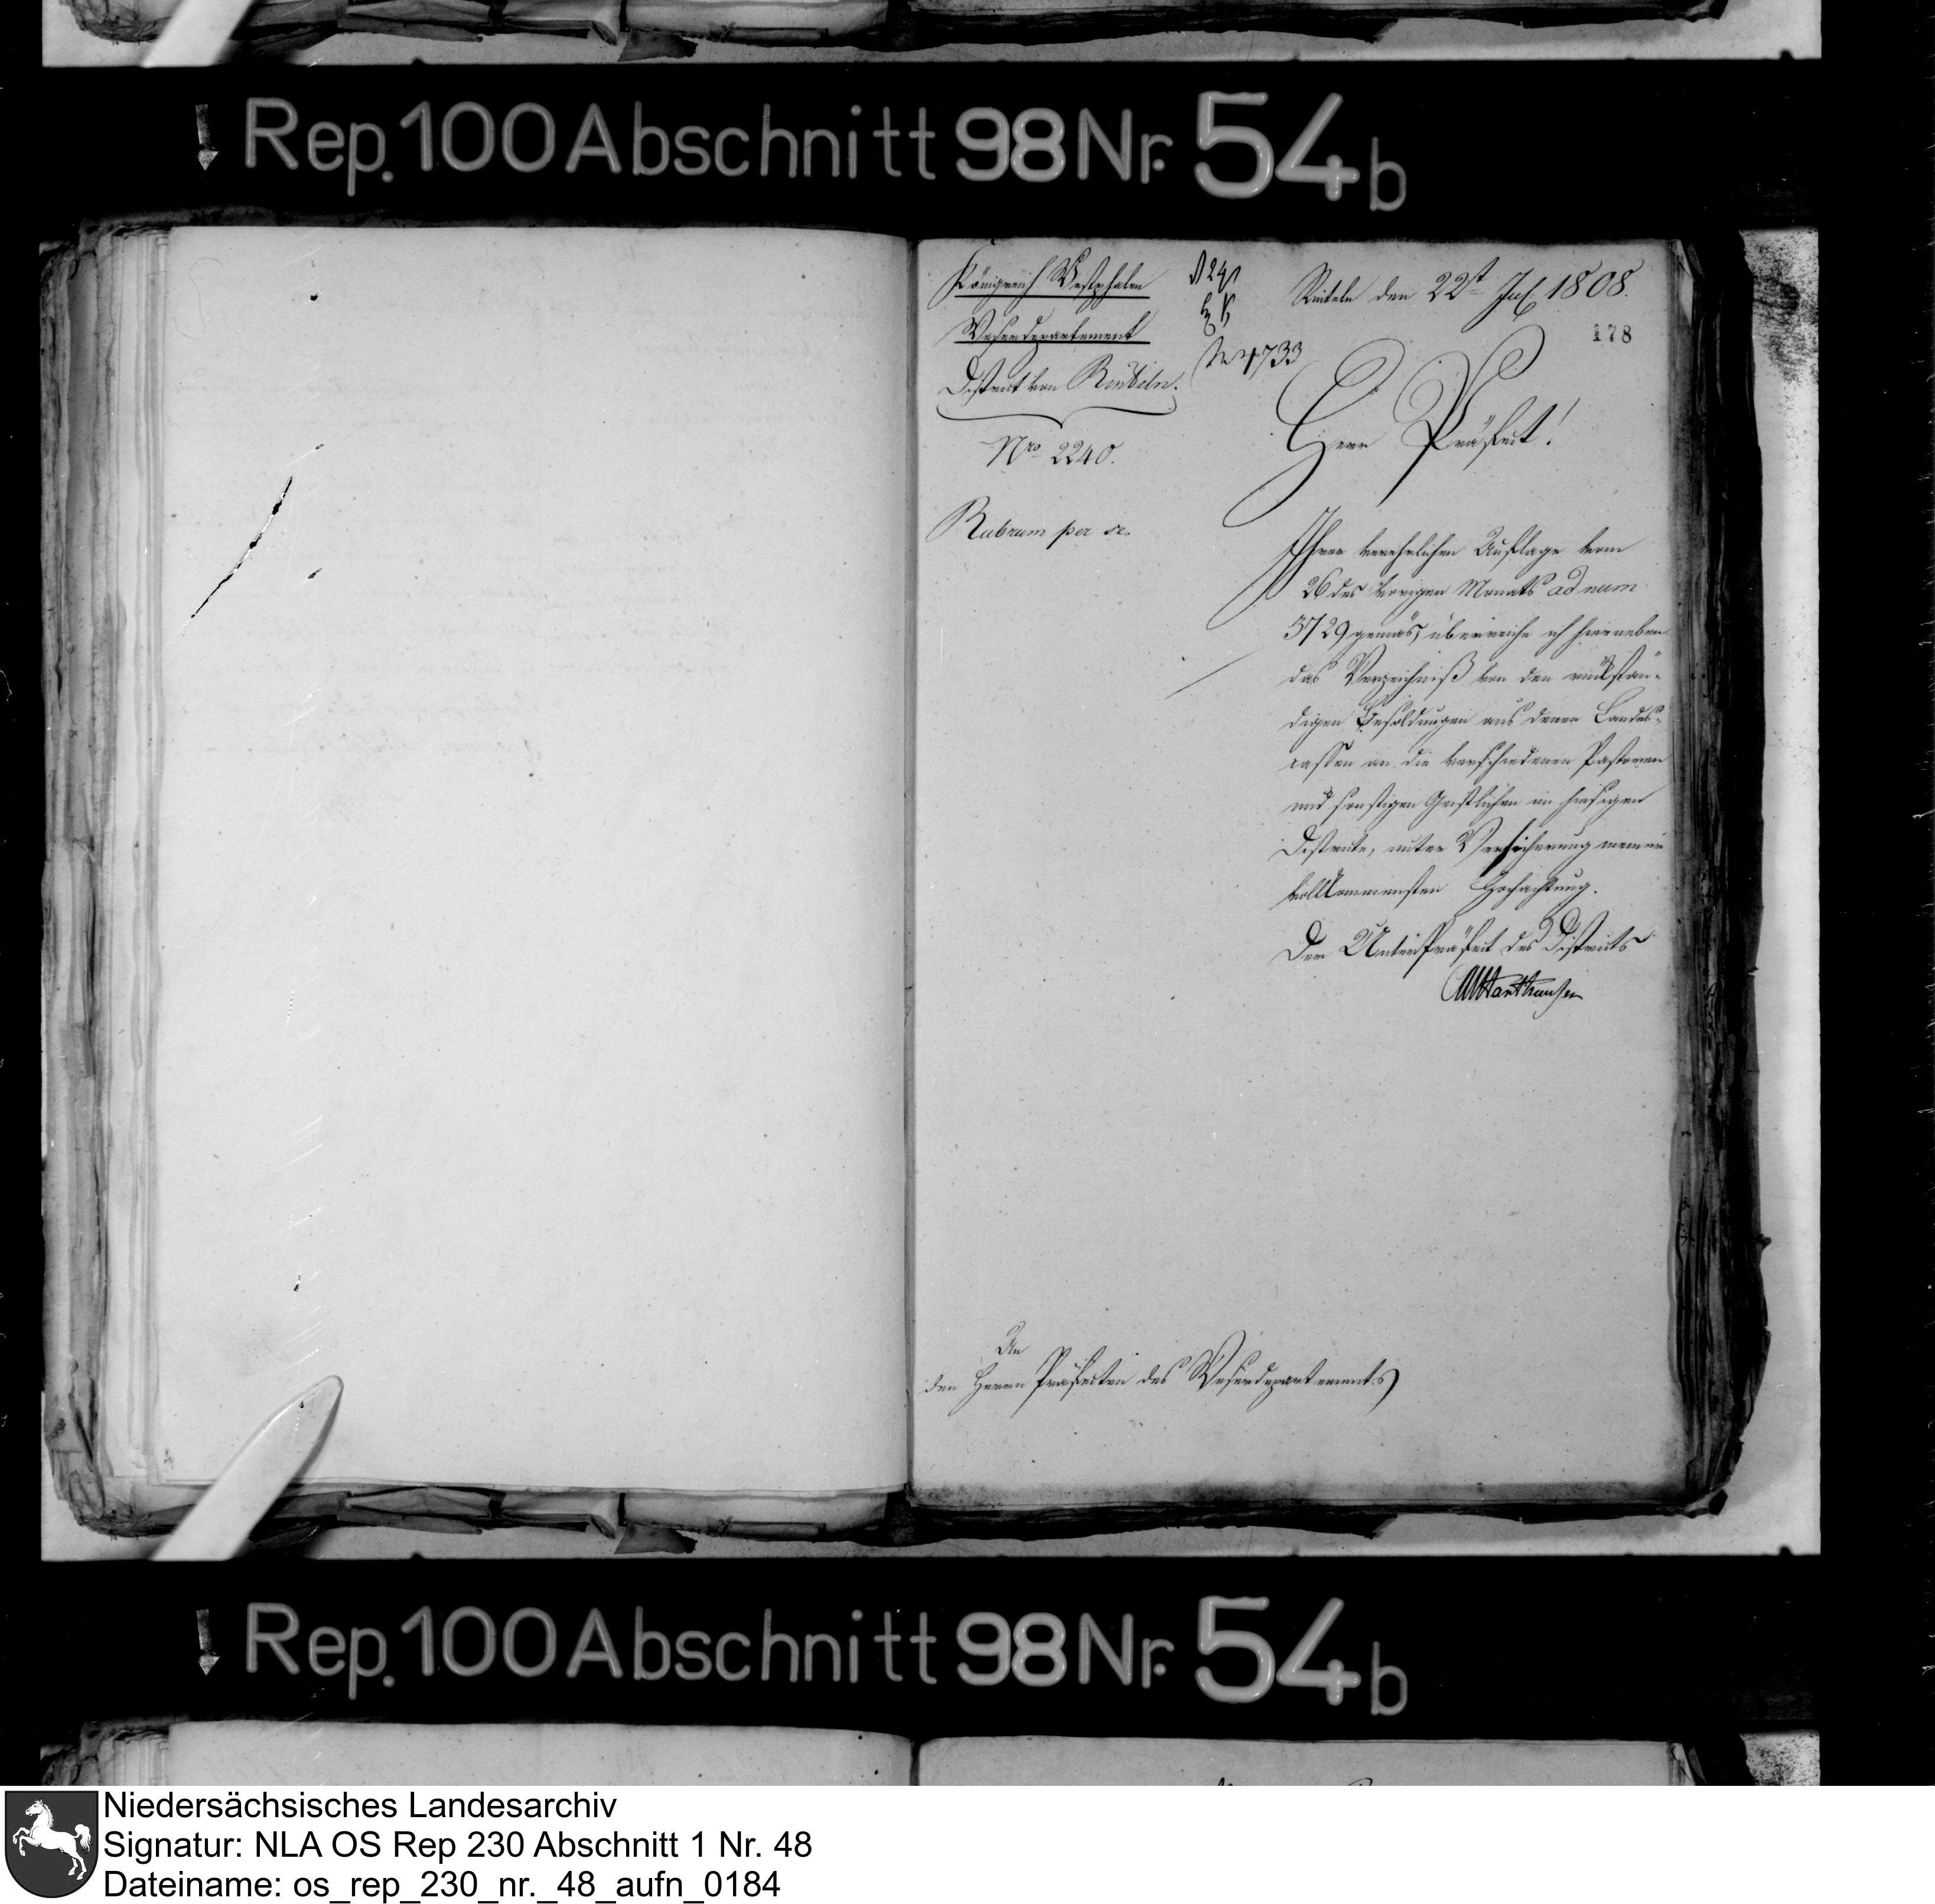 Rep. 100 Abschnitt 98 Nr. 54b
Königreich Westphalen
Weserdepartement
District von Rinteln.
Nro 2240.
Rubrum per se.
№ 4733
Rinteln den 22ten Jul 1808.
178
Herr Präfect!
Ihrer verehrlichen Auflage vom
26 des vorigen Monats ad num
3729 gemäs, überreiche ich hierneben
das Verzeichniß von den rückstän-
digen Besoldungen aus denen Landes-
cassen an die verschiedenen Pastoren
und sonstigen Geistlichen im hiesigen
Districte, unter Versicherung meiner
vollkommensten Hochachtung.
Der UnterPräfect des Districts
An
den Herrn Präfecten des Weserdepartements
Rep. 100 Abschnitt 98 Nr. 54b
Niedersächsisches Landesarchiv
Signatur: NLA OS Rep 230 Abschnitt 1 Nr. 48
Dateiname: os_rep_230_nr._48_aufn_0184